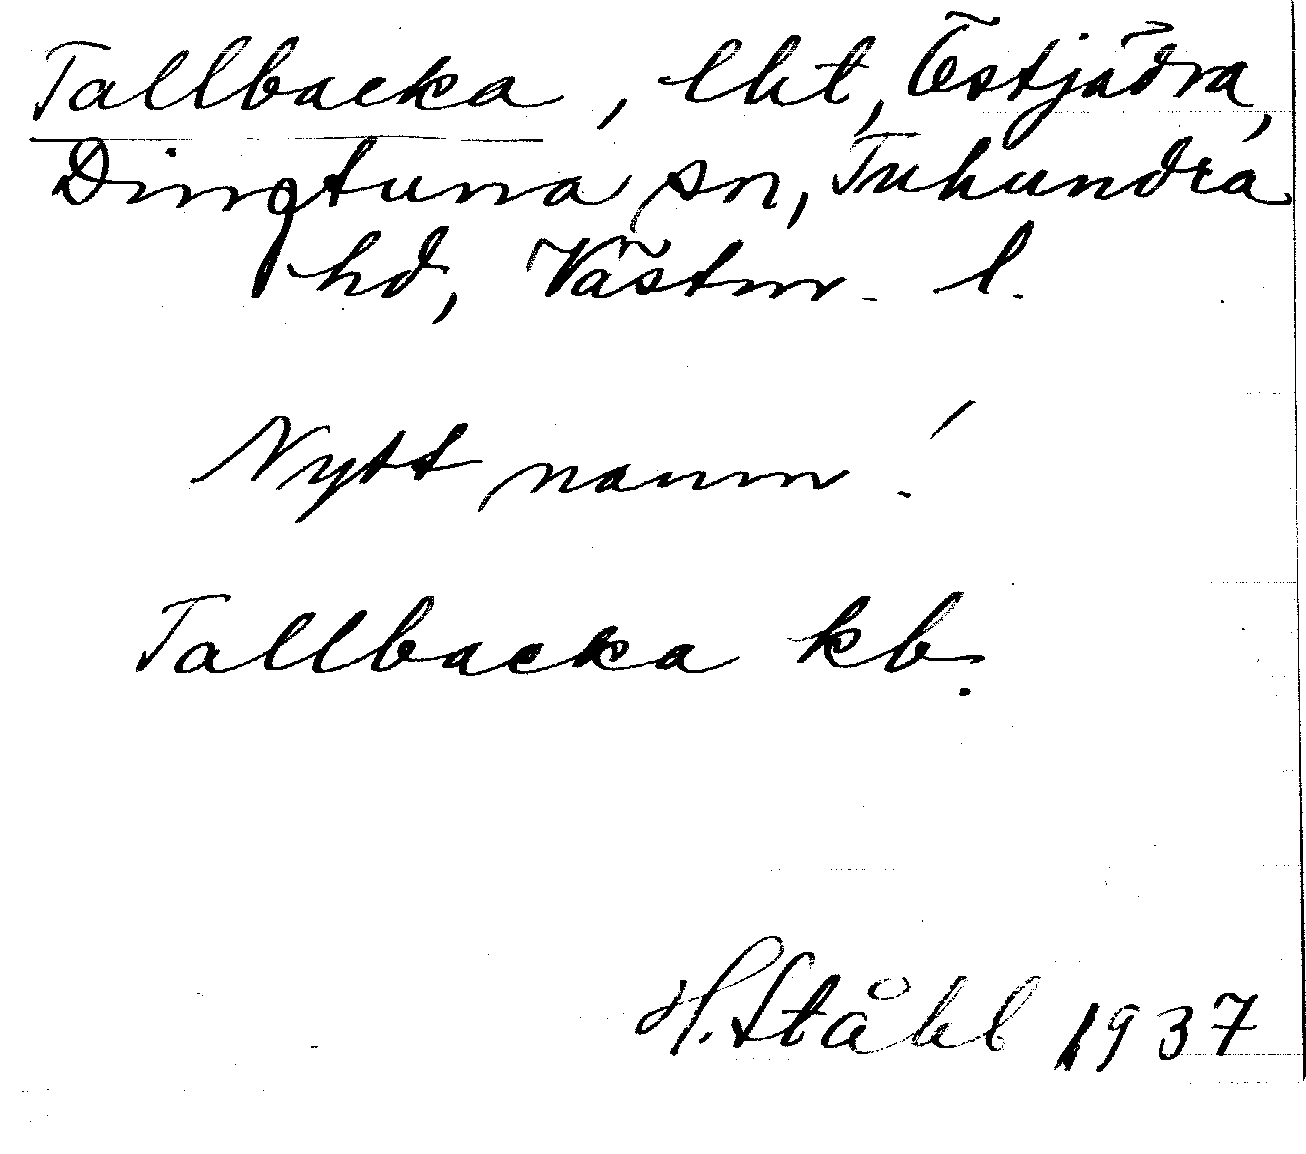 Tallbacka, lht, Östjädra,
Dingtuna sn, Tuhundra
hd, Västm. l.
Nytt namn!
Tallbacka kb.
H. Ståhl 1937